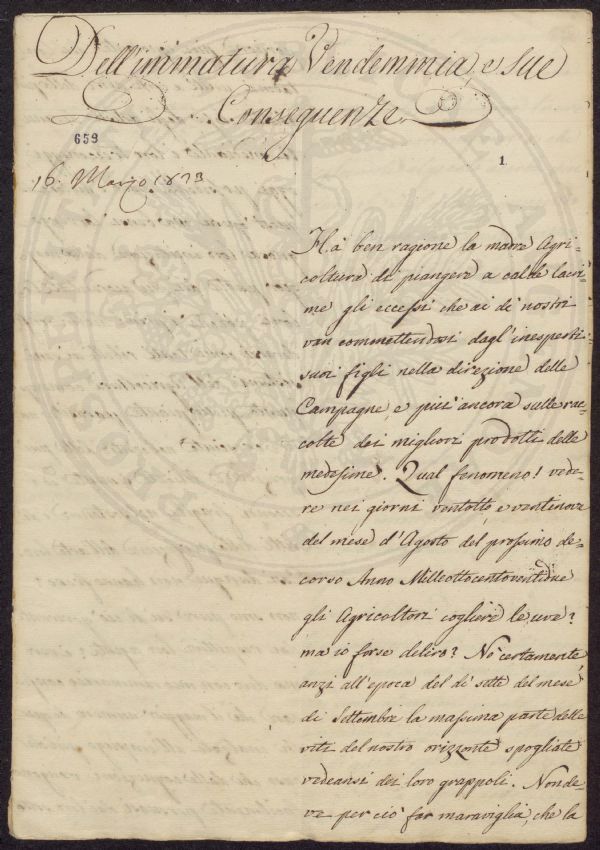 Dell'immatura Vendemmia, e sue
Conseguenze
659
1.
16. Marzo 1823
Ha ben ragione la madre Agri-
coltura di piangere a calde lacri-
me gli eccessi che ai dì nostri
van commettendosi dagl'inesperti
suoi figli nella direzione delle
Campagne, e più ancora sulle rac-
colte dei migliori prodotti delle
medesime. Qual fenomeno! vede-
re nei giorni ventotto, e ventinove
del mese d'Agosto del prossimo de-
corso Anno Milleottocentoventidue
gli Agricoltori cogliere le uve?
ma io forse deliro? Nò certamente,
anzi all'epoca del dì sette del mese
di Settembre la massima parte delle
viti del nostro orizzonte spogliate
vedeansi dei loro grappoli. Non de-
ve perciò far maraviglia, che la